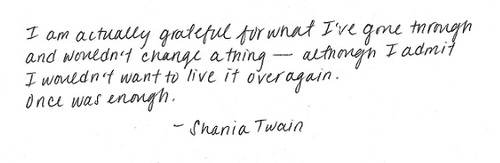 I am actually grateful for what I've gone through
and wouldn't change a thing — although I admit
I wouldn't want to live it over again.
Once was enough.
- Shania Twain